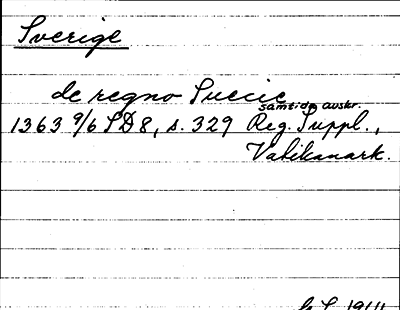 Sverige
de regno Suecie
samtida avskr.
1363 9/6 SD8, s. 329 Reg. Suppl.,
Vatikanark.